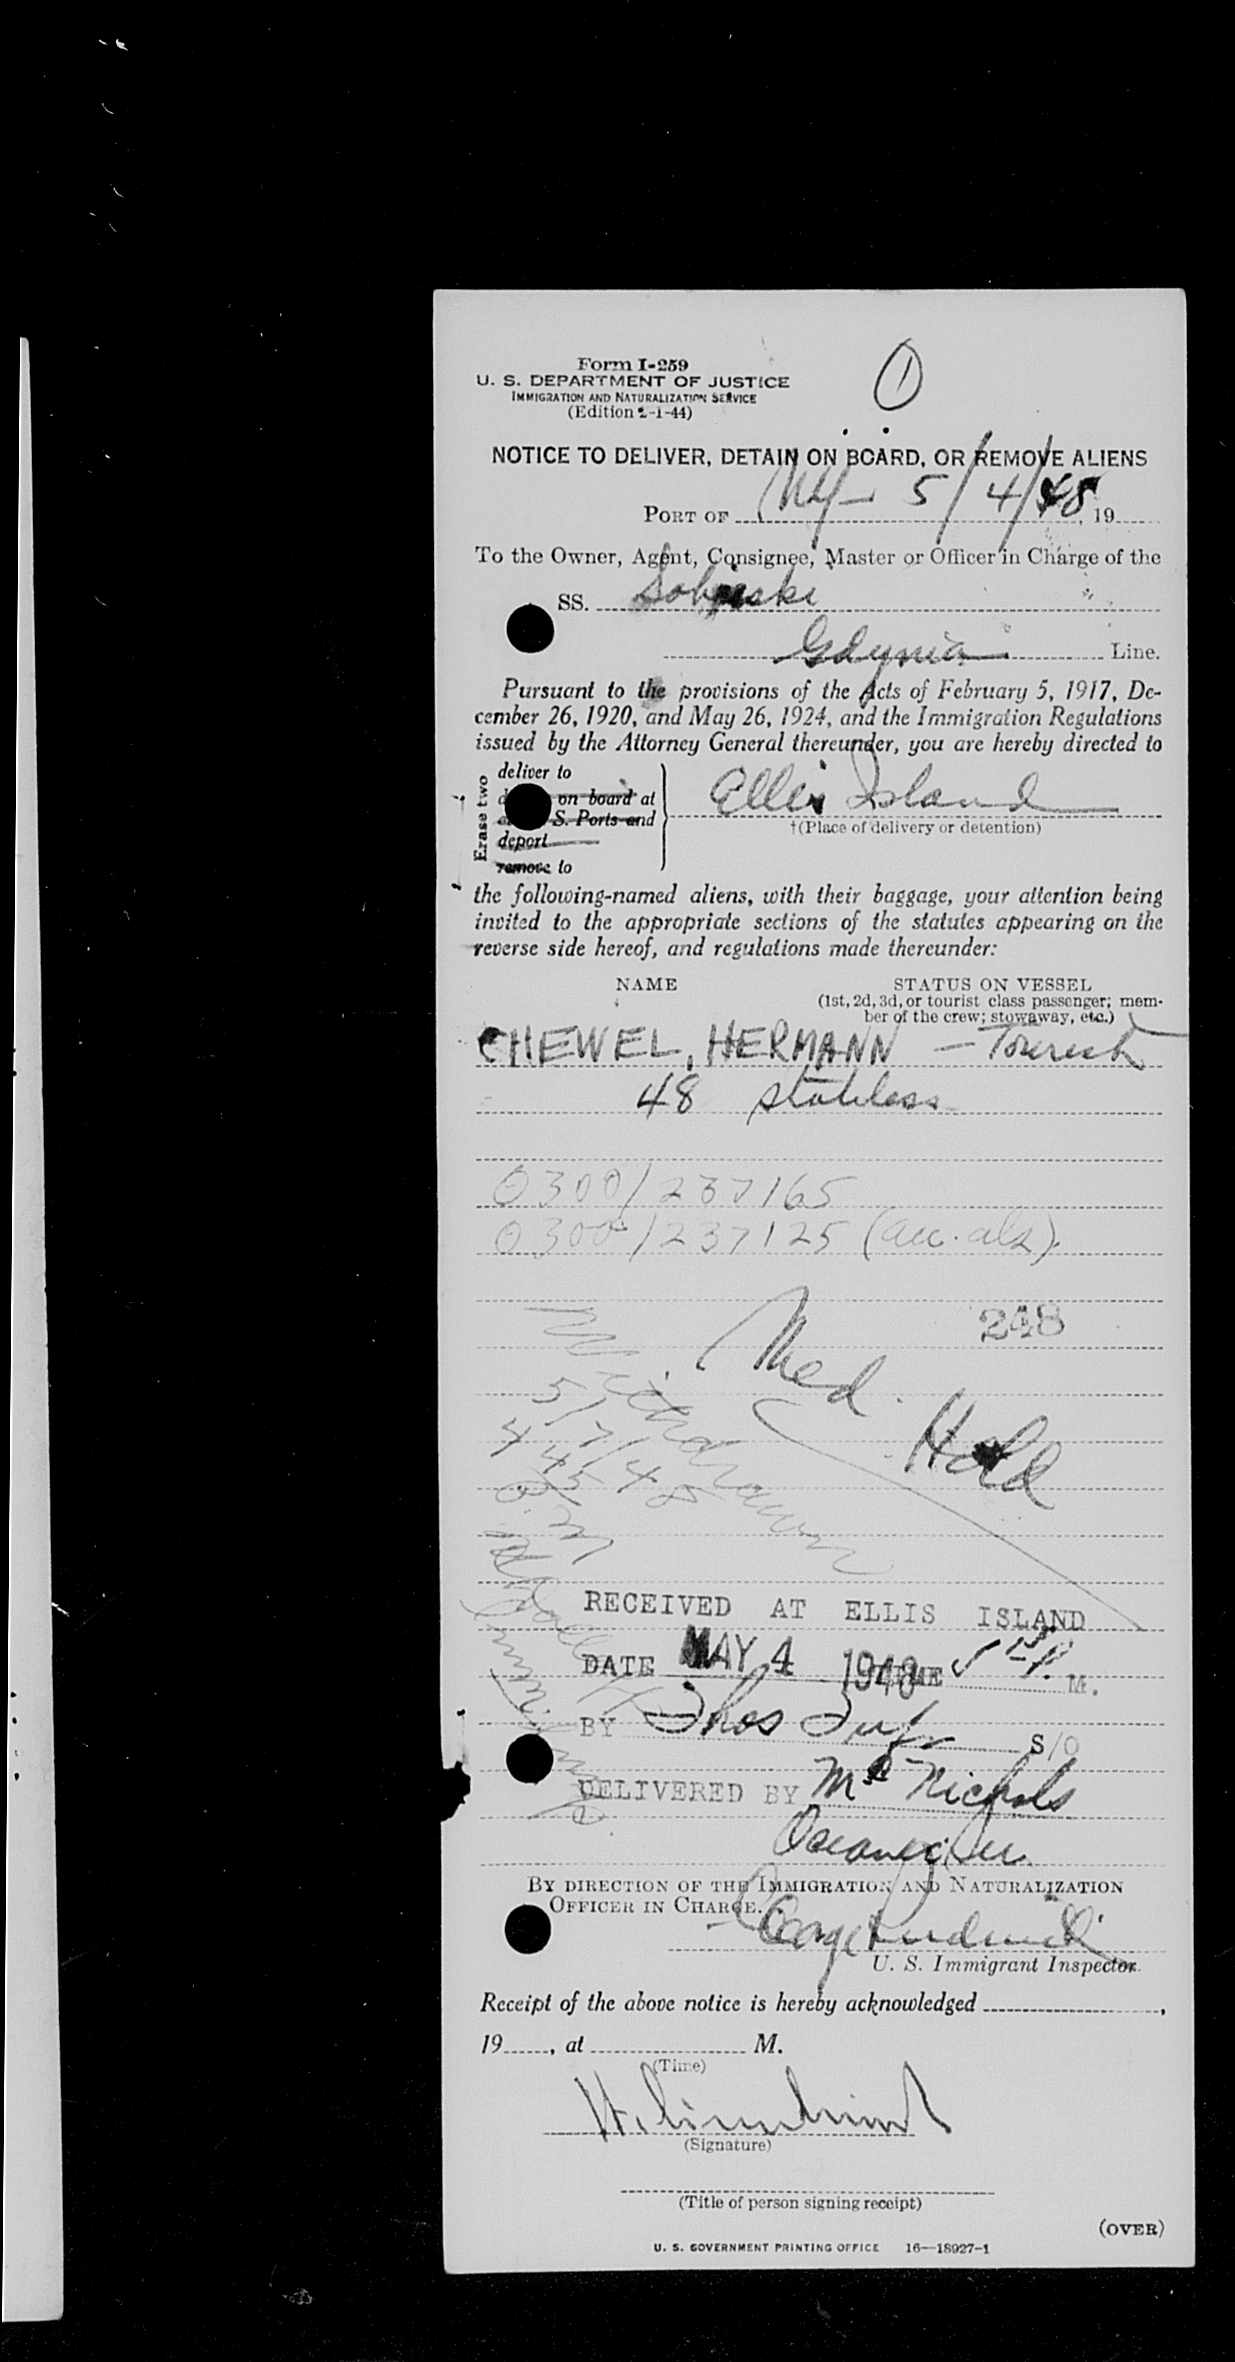 Form I-259
U. S. DEPARTMENT OF JUSTICE
IMMIGRATION AND NATURALIZATION SERVICE
(Edition 2-1-44)
1
NOTICE TO DELIVER, DETAIN ON BOARD, OR REMOVE ALIENS
PORT OF NY - 5/4/48, 19
To the Owner, Agent, Consignee, Master or Officer in Charge of the
SS. Sobieski
Gdynia Line.
Pursuant to the provisions of the Acts of February 5, 1917, De-
cember 26, 1920, and May 26, 1924, and the Immigration Regulations
issued by the Attorney General thereunder, you are hereby directed to
Erase two
deliver to
on board at
S. Ports and
deport
remove to
Ellis Island
†(Place of delivery or detention)
the following-named aliens, with their baggage, your attention being
invited to the appropriate sections of the statutes appearing on the
reverse side hereof, and regulations made thereunder:
NAME STATUS ON VESSEL
(1st, 2d, 3d, or tourist class passenger; mem-
ber of the crew; stowaway, etc.)
CHEWEL, HERMANN - Tourist
48 stateless
0300/237165
0300/237125 (acc. als).
248
Med. Hold
Withdrawn
5/7/48
4 45 PM
RECEIVED AT ELLIS ISLAND
DATE MAY 4 1948 TIME M.
BY Thos S/O
DELIVERED BY McNichols
BY DIRECTION OF THE IMMIGRATION AND NATURALIZATION
OFFICER IN CHARGE.
George
U. S. Immigrant Inspector.
Receipt of the above notice is hereby acknowledged ,
19 , at M.
(Time)
H.
(Signature)
(Title of person signing receipt)
(OVER)
U. S. GOVERNMENT PRINTING OFFICE 16—18927-1